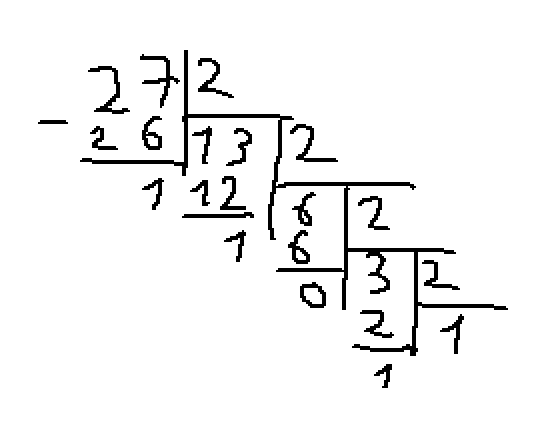 27 2
- 26 13 2
1 12 6 2
1 6 3 2
0 2 1
1